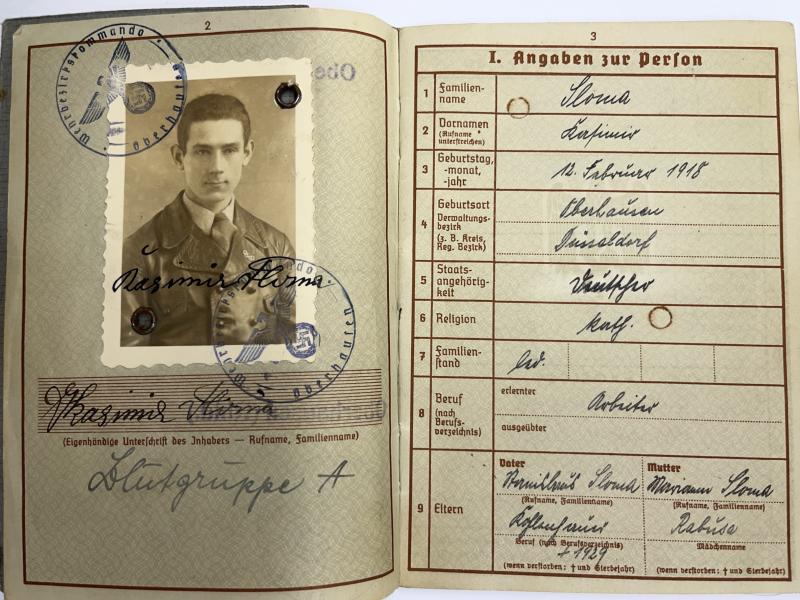 2
Wehrbezirkskommando
Oberhausen
Kasimir
Wehrbezirkskommando
Oberhausen
Kasimir
(Eigenhändige Unterschrift des Inhabers — Rufname, Familienname)
Blutgruppe A
3
I. Angaben zur Person
1 Familien-name Sloma
2 Vornamen (Rufname unterstreichen) Kasimir
3 Geburtstag, -monat, -jahr 12. Februar 1918
4 Geburtsort Verwaltungs-bezirk (z. B. Kreis, Reg. Bezirk) Oberhausen
Düsseldorf
5 Staats-angehörig-keit Deutscher
6 Religion kath.
7 Familien-stand led.
8 Beruf (nach Berufs-verzeichnis) erlernter Arbeiter
ausgeübter
9 Eltern
Vater Mutter
Stanislaus Sloma Mariann Sloma
(Rufname, Familienname) (Rufname, Familienname)
Kohlenhauer Rabusa
Beruf (nach Berufsverzeichnis) Mädchenname
† 1929
(wenn verstorben: † und Sterbejahr) (wenn verstorben: † und Sterbejahr)